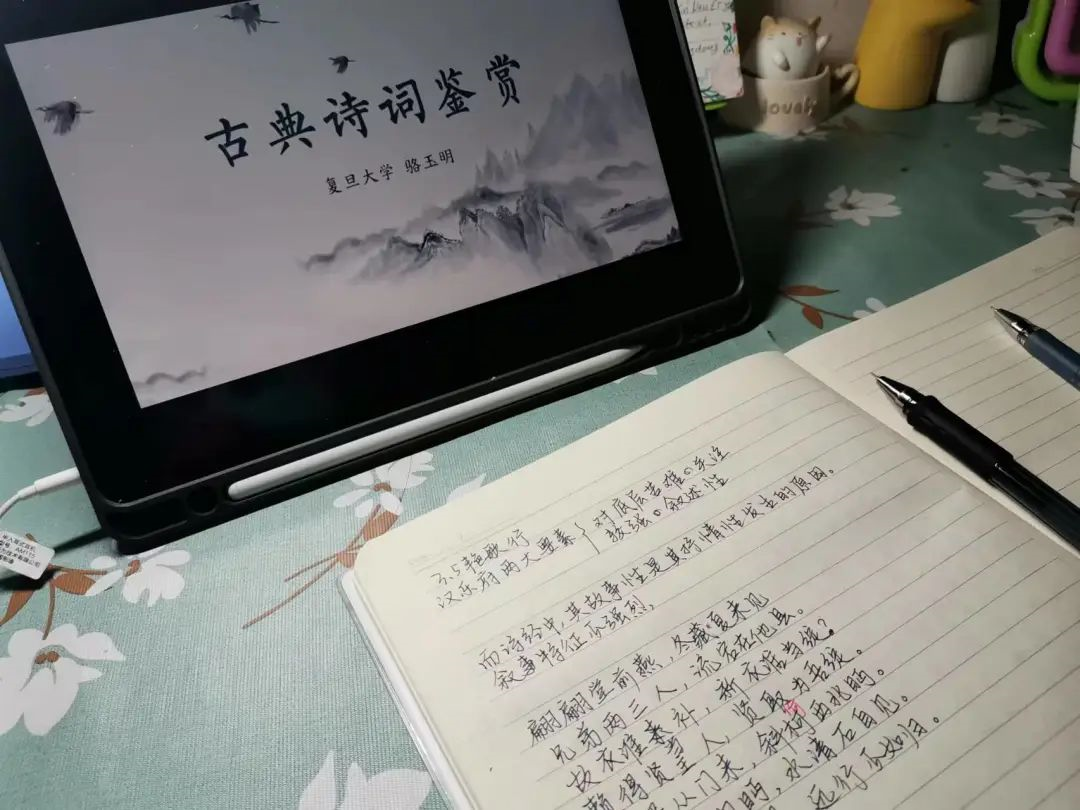 古典诗词鉴赏
复旦大学 骆玉明
入耳式耳机
型号: AM115
3.5 艳歌行
汉乐府两大要素
对底层苦难的关注
较强的叙述性
而诗经中,其故事性是其抒情性发生的原因。
叙事特征不强烈,
翩翩堂前燕,冬藏夏来见
兄弟两三人,流宕在他县。
故衣谁补,新衣谁当绽?
赖得贤主人,取为吾
从门来,斜柯西北眄。
眄,水清石自见。
远行不如归。